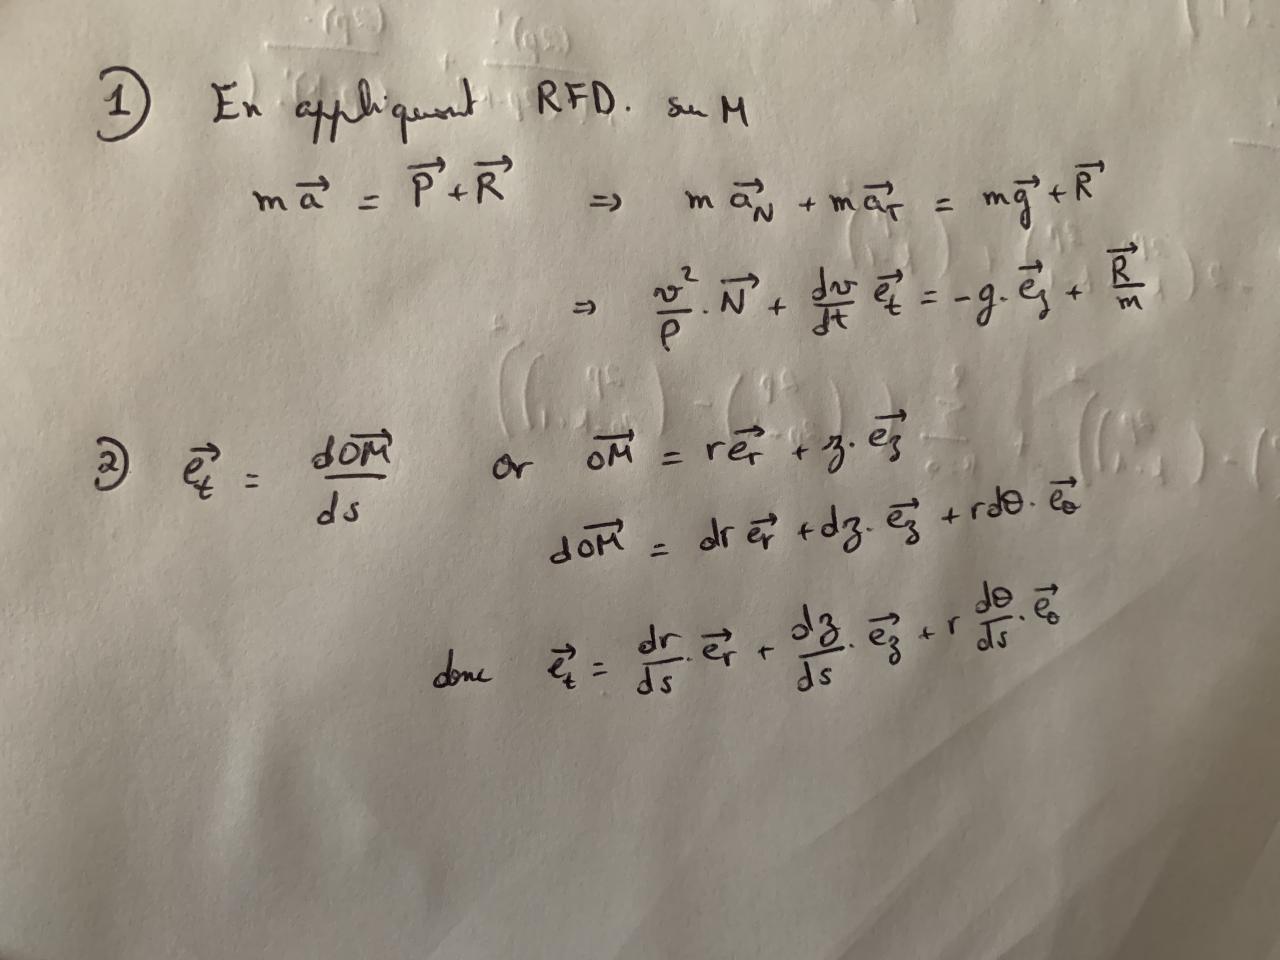 ① En appliquant RFD. sur M
m a⃗ = P⃗ + R⃗ ⇒ m a⃗_N + m a⃗_T = m g⃗ + R⃗
⇒ v²/ρ . N⃗ + dv/dt e⃗_t = -g. e⃗_z + R⃗/m
② e⃗_t = dOM⃗/ds or OM⃗ = r e⃗_r + z. e⃗_z
dOM⃗ = dr e⃗_r + dz. e⃗_z + r dθ. e⃗_θ
donc e⃗_t = dr/ds . e⃗_r + dz/ds . e⃗_z + r dθ/ds . e⃗_θ